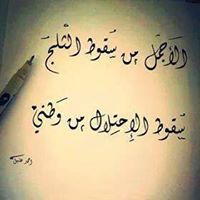 الأَجْمَل مِن سُقوط الثَّلجْ
سُقوط الإحتِلال مِن وَطَنيْ